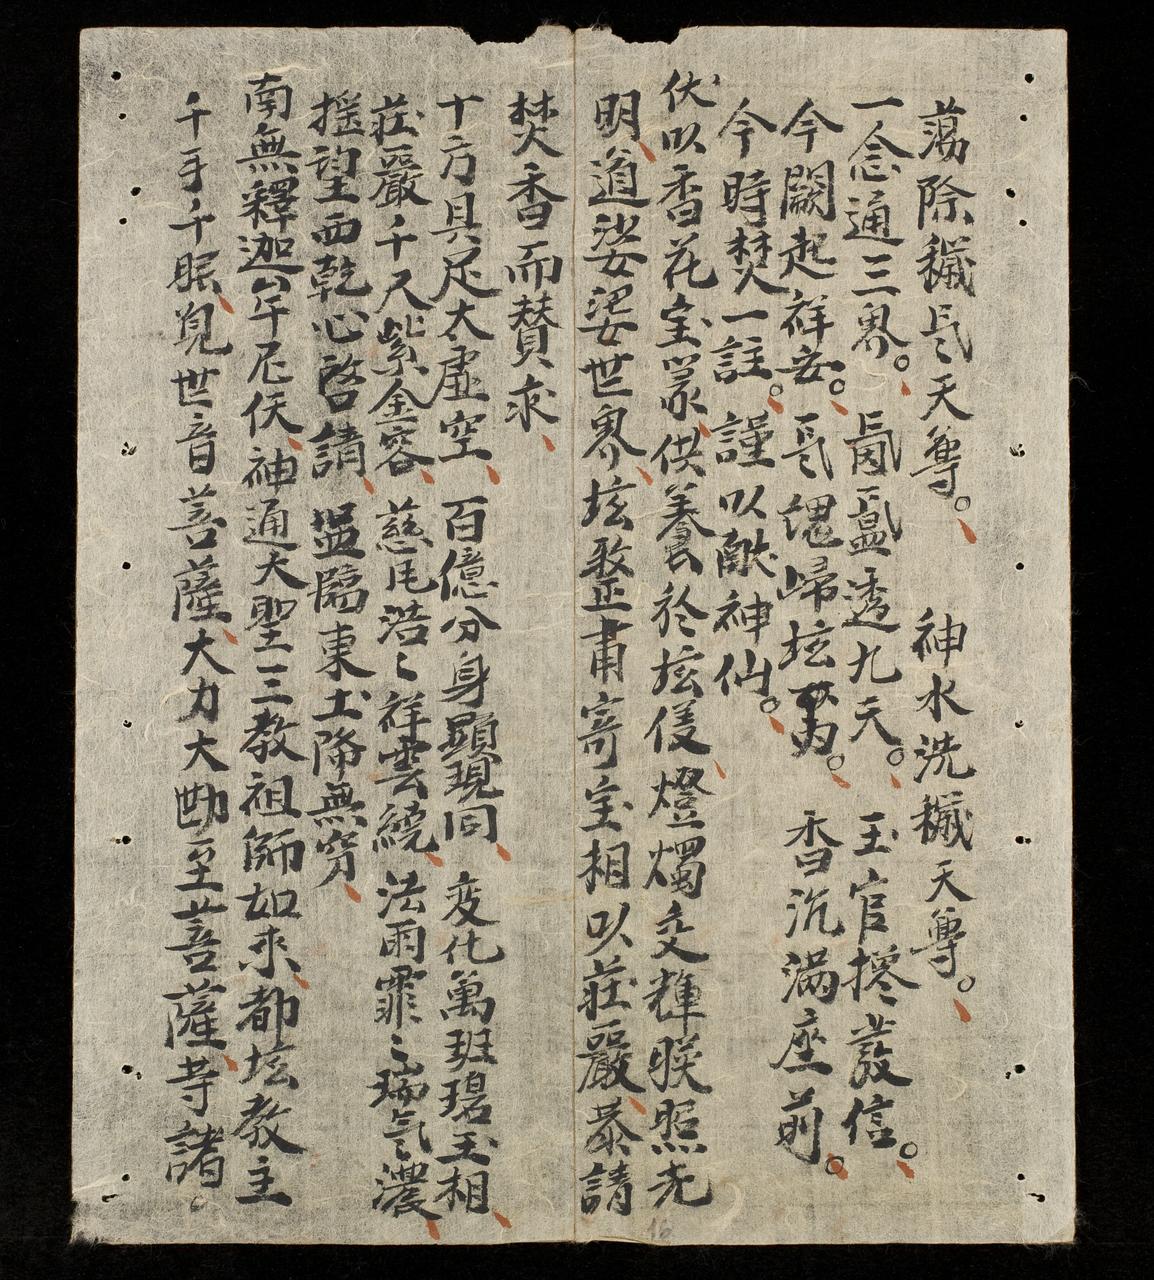 蕩除穢炁天尊。 神水洗穢天尊。
一念通三界。 透九天。 玉官擦發信。
今闕起祥安。 炁歸坛 。 香沉滿座前。
今時焚一註。謹以献神仙。
伏以香花宝篆供養於坛 燈燭交輝朕照光
明道娑婆世界坛整肅寄宝相以莊嚴恭請
焚香而賛求
十方具足大虛空 百億分身顕現同 変化萬班碧玉相
莊嚴千尺紫金容 慈 浩〻祥雲繞 法雨霏〻瑞气濃
摇望西乾心啓請 臨東土降無穷
南無釋迦牟尼佛神通大聖三教祖師如來都坛教主
千手千眼覌世音菩薩大力大勘至菩薩等諸。